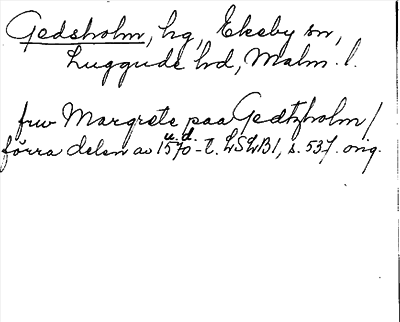 Gedsholm, hg, Ekeby sn,
Luggude hd, Malm. l.
frw Margrete paa Gedtzholm /
u. d.
förra delen av 1570-t. LSLB1, s. 537. orig.